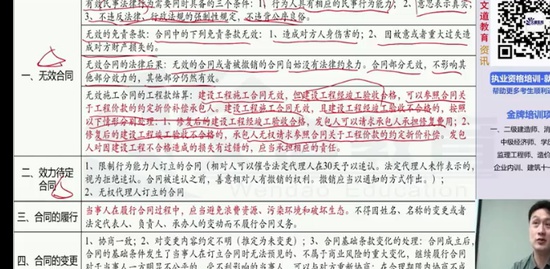 有效民事法律行为需要同时具备的三个条件：1、行为人具有相应的民事行为能力；2、意思表示真实；
3、不违反法律、行政法规的强制性规定，不违背公序良俗。
无效的免责条款：合同中的下列免责条款无效：1、造成对方人身伤害的；2、因故意或者重大过失造
成对方财产损失的。
一、无效合同
无效合同的法律后果：无效的合同或者被撤销的合同自始没有法律约束力。合同部分无效，不影响其
他部分效力的，其他部分仍然有效。
无效施工合同的工程款结算：建设工程施工合同无效，但建设工程经竣工验收合格，可以参照合同关
于工程价款的约定折价补偿承包人。建设工程施工合同无效，且建设工程经竣工验收不合格的，按照
以下情形分别处理：1、修复后的建设工程经竣工验收合格，发包人可以请求承包人承担修复费用；2、
修复后的建设工程经竣工验收不合格的，承包人无权请求参照合同关于工程价款的约定折价补偿。发包
人对因建设工程不合格造成的损失有过错的，应当承担相应的责任。
二、效力待定
合同
1、限制行为能力人订立的合同（相对人可以催告法定代理人在30天予以追认。法定代理人未作表示的，
视为拒绝追认。合同被追认之前，善意相对人有撤销的权利。撤销应当以通知的方式作出。）；
2、无权代理人订立的合同
Wendao Education
三、合同的履行
当事人在履行合同过程中，应当避免浪费资源、污染环境和破坏生态。不得因姓名、名称的变更或者
法定代表人、负责人、承办人的变动而不履行合同义务。
四、合同的变更
1、协商一致；2、对变更内容约定不明（推定为未变更）；3、合同基础条款变化的处理：合同成立后，
合同的基础条件发生了当事人在订立合同时无法预见的、不属于商业风险的重大变化，继续履行合同
文道教育
资讯
执业资格培训-就
帮助更多考生顺利
金牌培训项
一、二级建造师、消
中级经济师、学
监理工程师、造价
企业内训、建筑十一